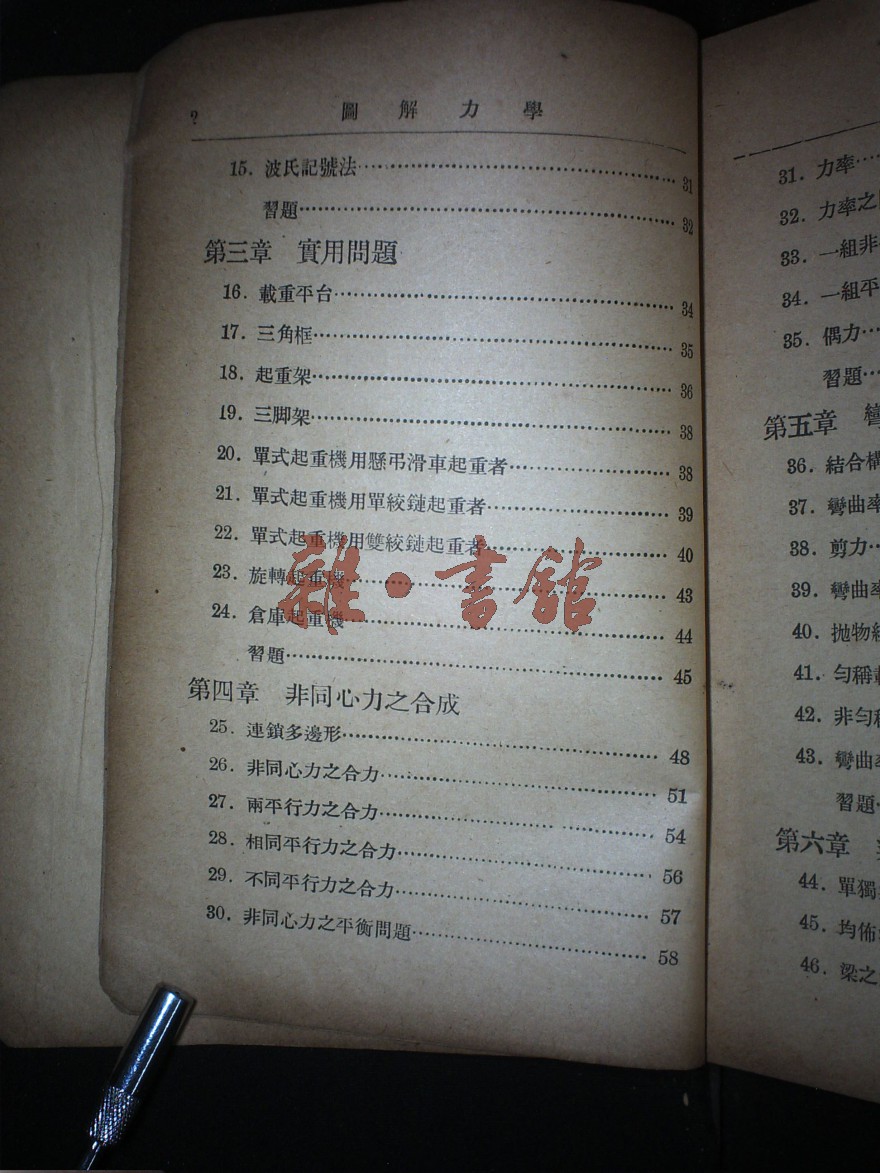 2 圖解力學
15. 波氏記號法 31
習題 32
第三章 實用問題
16. 載重平台 34
17. 三角框 35
18. 起重架 36
19. 三脚架 38
20. 單式起重機用懸弔滑車起重者 38
21. 單式起重機用單絞鏈起重者 39
22. 單式起重機用雙絞鏈起重者 40
23. 旋轉起重機 43
24. 倉庫起重機 44
習題 45
第四章 非同心力之合成
25. 連鎖多邊形 48
26. 非同心力之合力 51
27. 兩平行力之合力 54
28. 相同平行力之合力 56
29. 不同平行力之合力 57
30. 非同心力之平衡問題 58
雜·書舘
31. 力率
32. 力率之
33. 一組非
34. 一組平
35. 偶力
習題
第五章 彎
36. 結合構
37. 彎曲率
38. 剪力
39. 彎曲率
40. 拋物線
41. 勻稱載
42. 非勻稱
43. 彎曲率
習題
第六章
44. 單獨
45. 均佈
46. 梁之